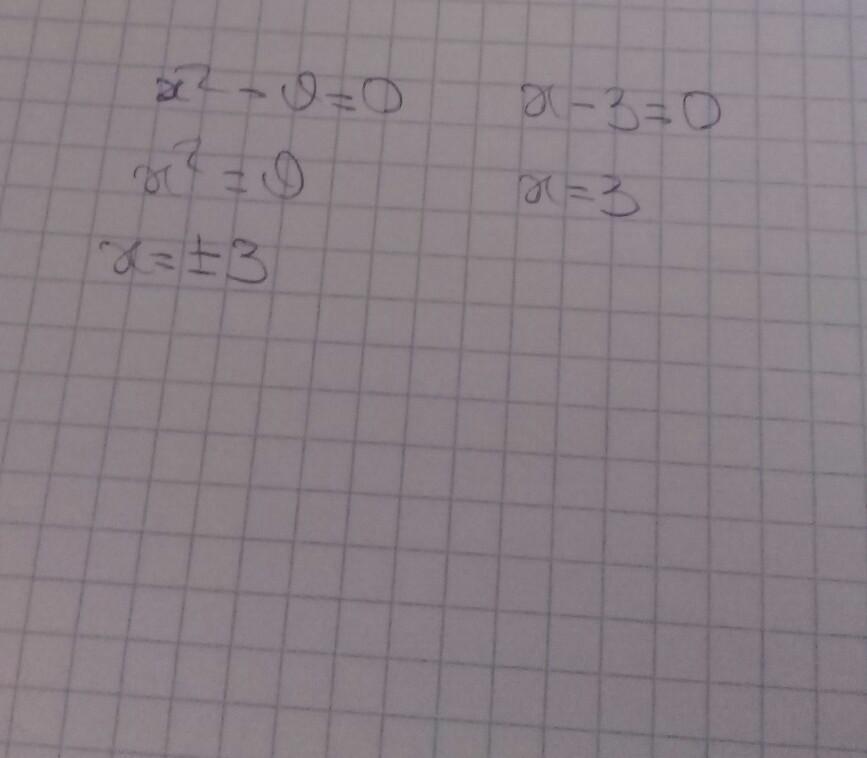 x² - 9 = 0
x² = 9
x = ± 3
x - 3 = 0
x = 3